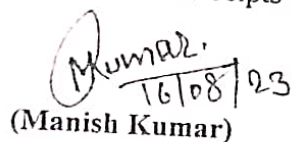 MKumar.
16/08/23
(Manish Kumar)